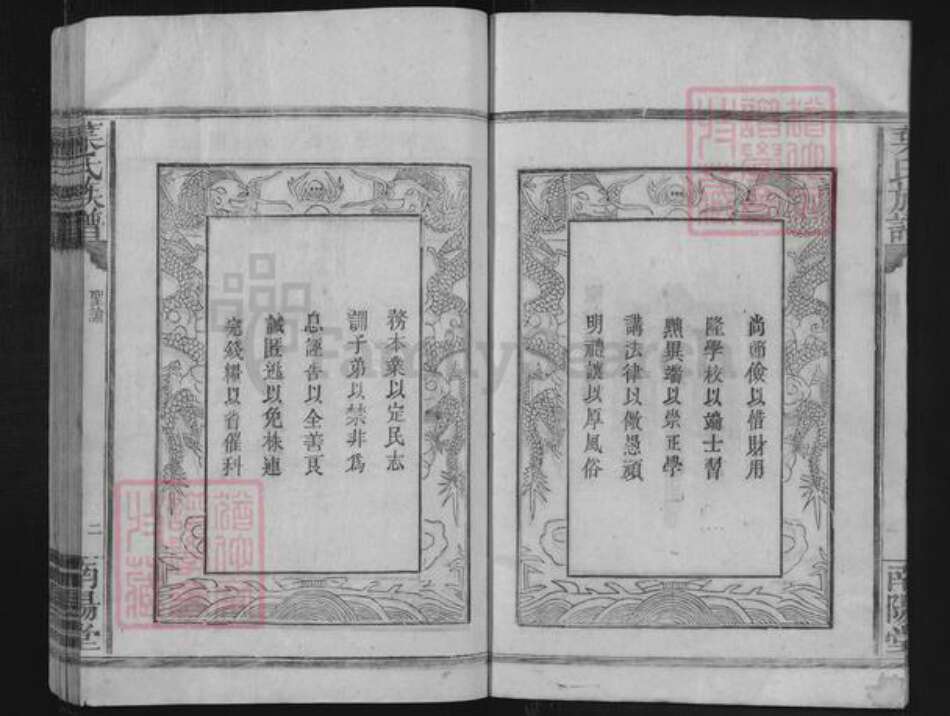 尚節儉以惜財用
隆學校以端士習
黜異端以崇正學
講法律以儆愚頑
明禮讓以厚風俗
務本業以定民志
訓子弟以禁非為
息誣告以全善良
誡匿逃以免株連
完錢糧以省催科
葉氏族譜
聖諭
二
南陽堂
葉氏族譜
南陽堂
FamilySearch